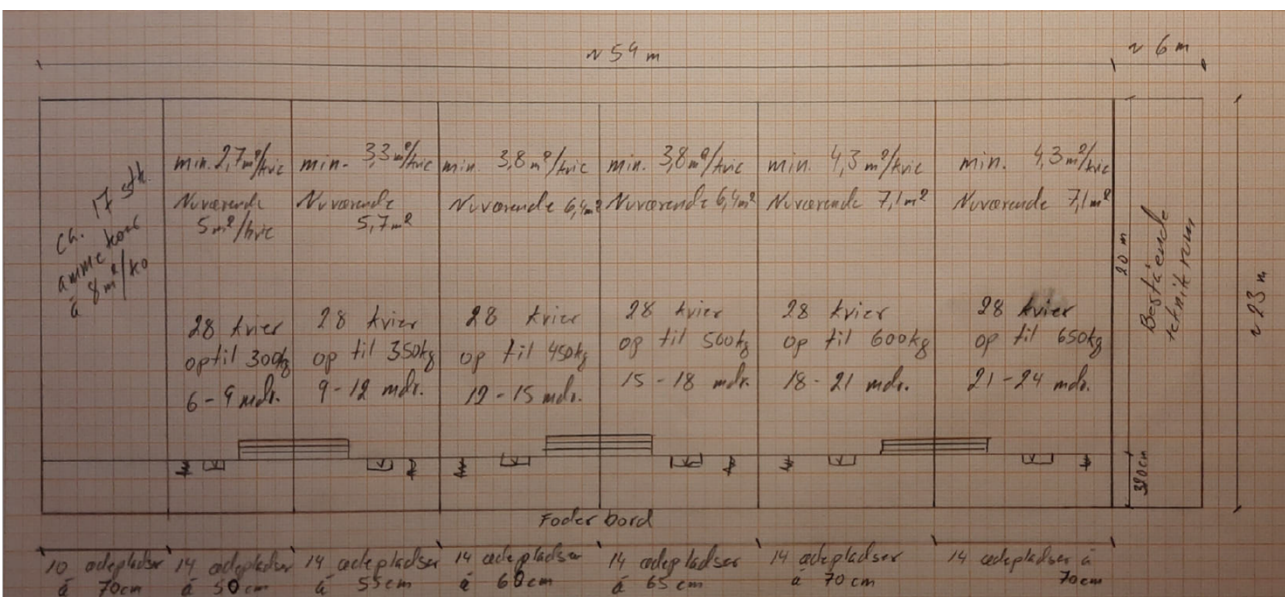 ~ 54 m
~ 6 m
Ch. 17 stk.
ammekoer
á 8m²/ko
min. 2,7m²/kvie
Nuværende
5m²/kvie
28 kvier
op til 300kg
6-9 mdr.
min. 3,3m²/kvie
Nuværende
5,7m²
28 kvier
op til 350kg
9-12 mdr.
min. 3,8m²/kvie
Nuværende 6,4m²
28 kvier
op til 450kg
12-15 mdr.
min. 3,8m²/kvie
Nuværende 6,4m²
28 kvier
op til 500kg
15-18 mdr.
min. 4,3m²/kvie
Nuværende 7,1m²
28 kvier
op til 600kg
18-21 mdr.
min. 4,3m²/kvie
Nuværende 7,1m²
28 kvier
op til 650kg
21-24 mdr.
20 m
Bestående
teknik rum
~ 23 m
320cm
Foder bord
10 ædepladser
á 70cm
14 ædepladser
á 50cm
14 ædepladser
á 55cm
14 ædepladser
á 60cm
14 ædepladser
á 65cm
14 ædepladser
á 70cm
14 ædepladser á
70cm